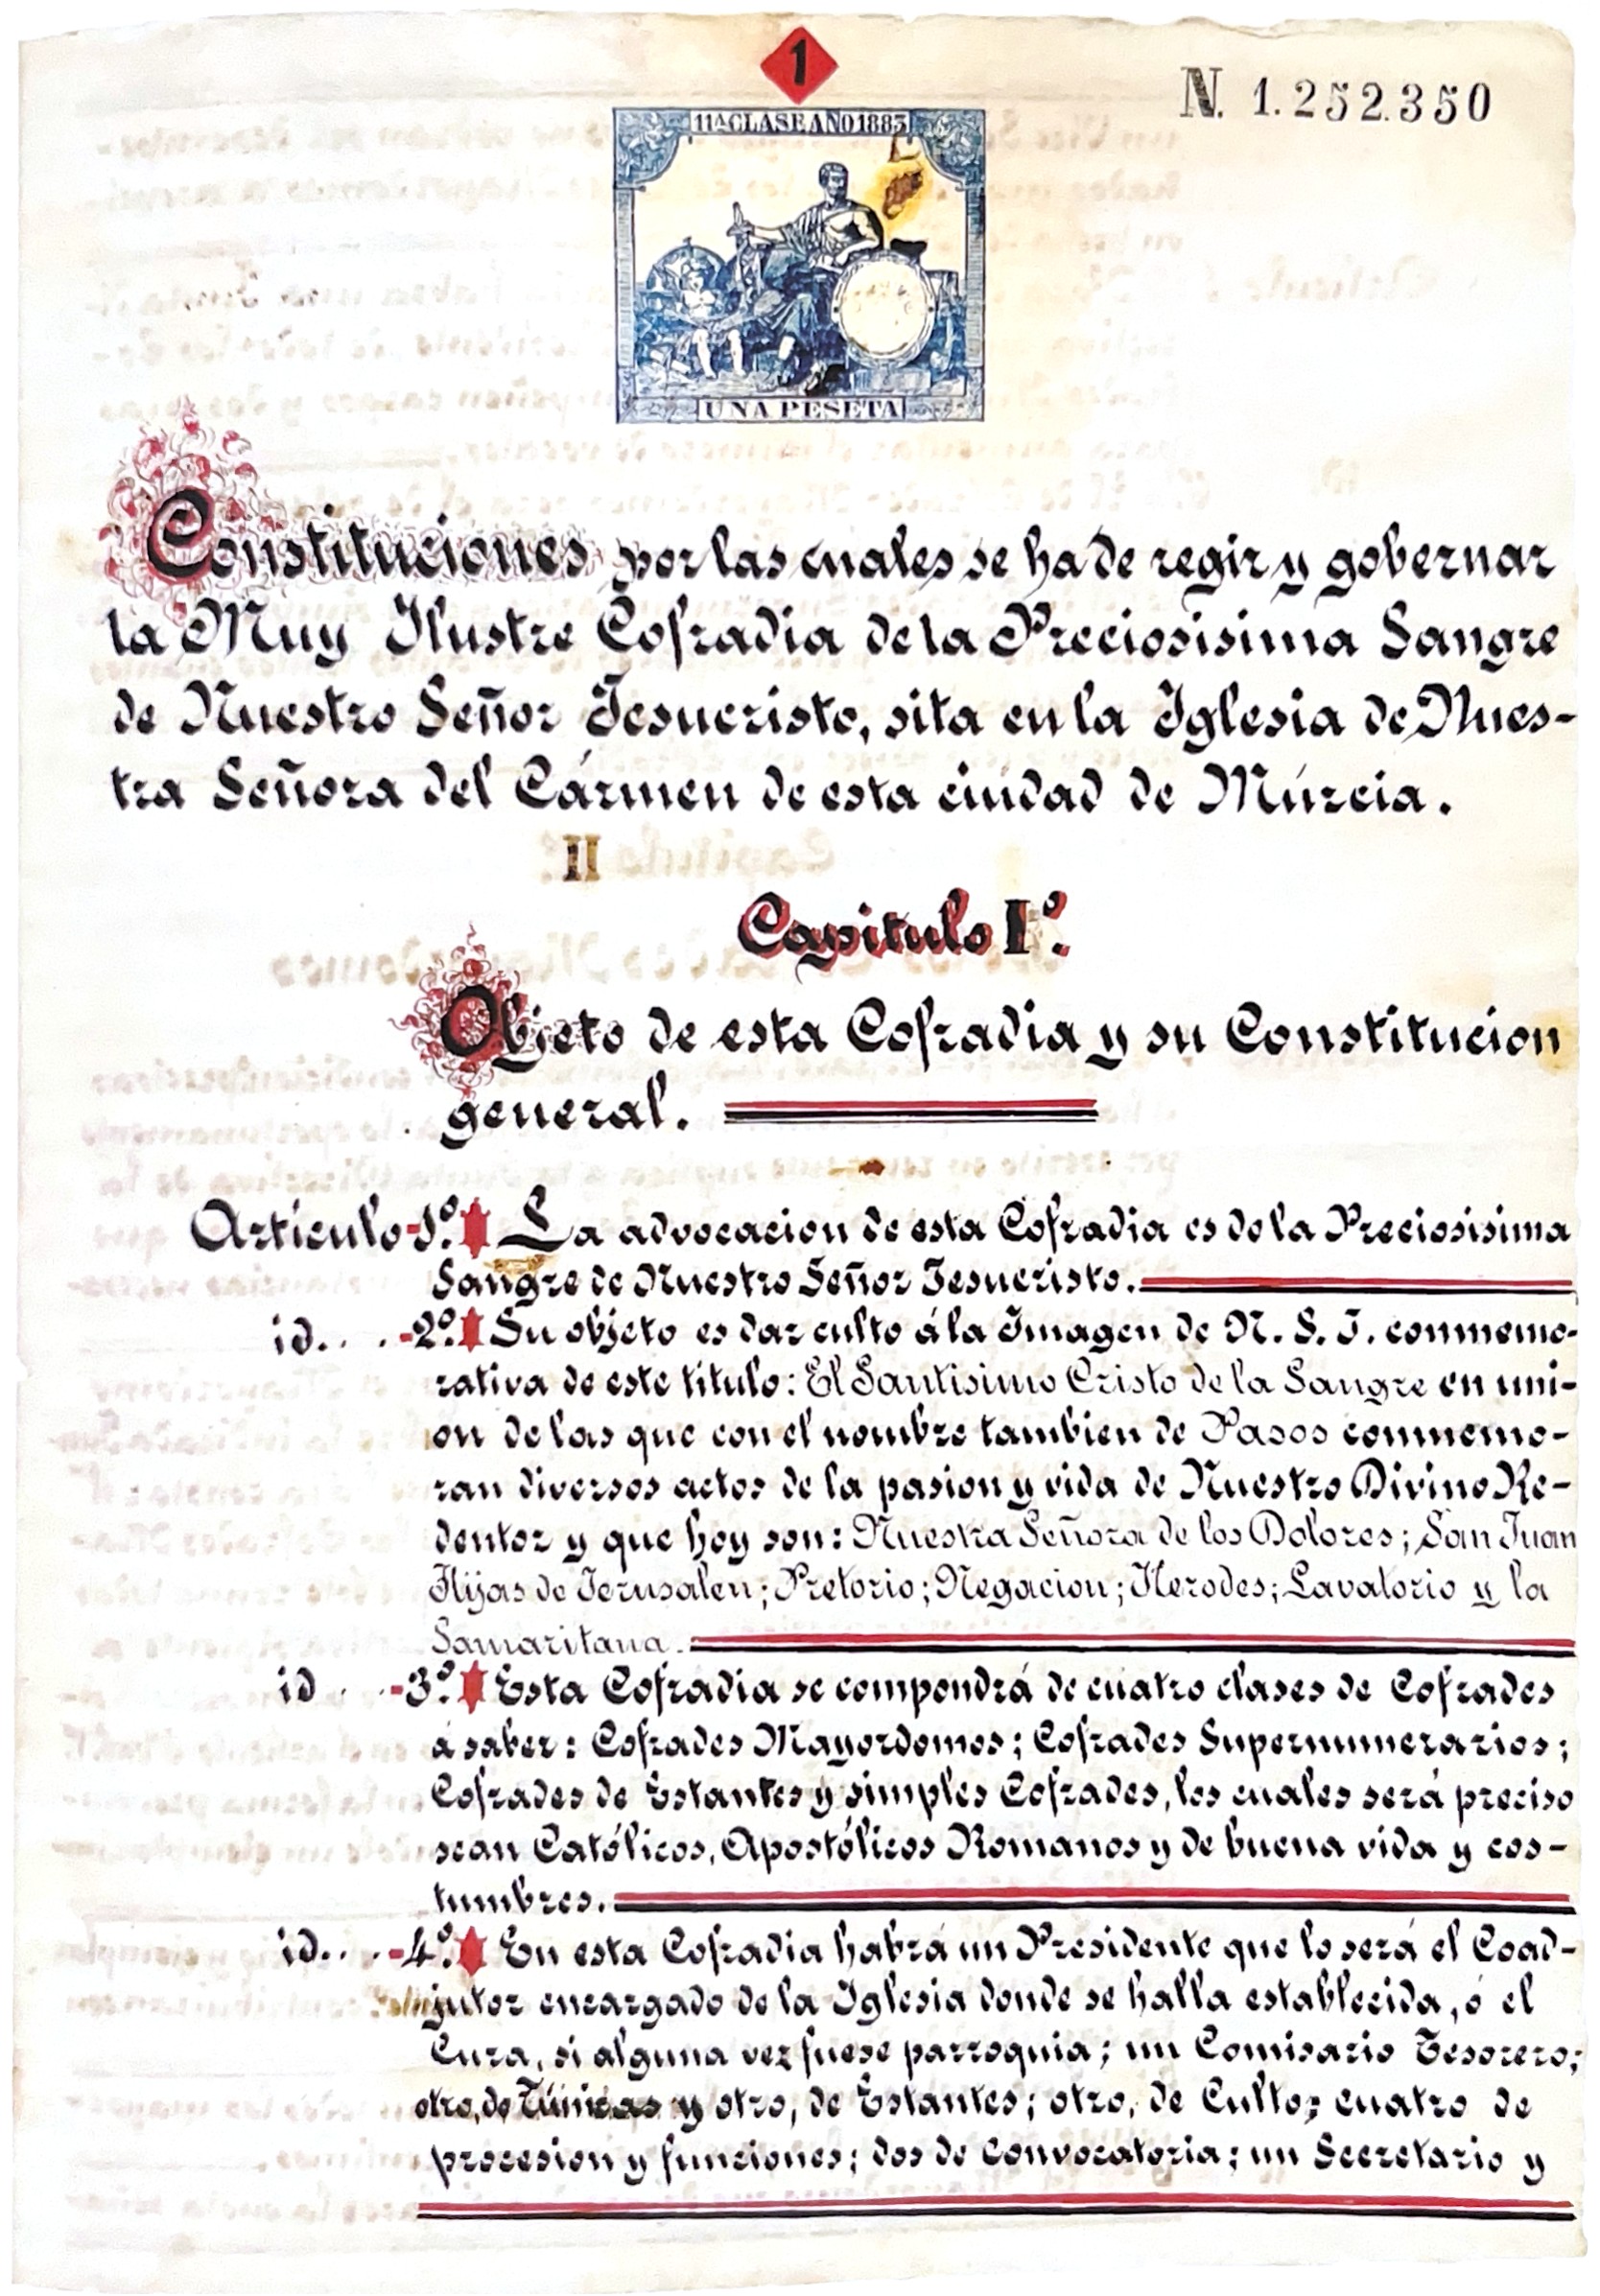 1
N. 1.252.350
11ª CLASE AÑO 1883
UNA PESETA
Constituciones por las cuales se ha de regir y gobernar
la Muy Ilustre Cofradia de la Preciosisima Sangre
de Nuestro Señor Jesucristo, sita en la Iglesia de Nues-
tra Señora del Cármen de esta ciudad de Múrcia.
II
Capitulo Iº.
Objeto de esta Cofradia y su Constitucion
general.
Artículo-1º. La advocacion de esta Cofradia es de la Preciosisima
Sangre de Nuestro Señor Jesucristo.
id. . . -2º. Su objeto es dar culto á la Imagen de N. S. J. conmemo-
rativa de este titulo: El Santisimo Cristo de la Sangre en uni-
on de las que con el nombre tambien de Pasos conmemo-
ran diversos actos de la pasion y vida de Nuestro Divino Re-
dentor y que hoy son: Nuestra Señora de los Dolores; San Juan
Hijas de Jerusalen; Pretorio; Negacion; Herodes; Lavatorio y la
Samaritana.
id . . -3º. Esta Cofradia se compondrá de cuatro clases de Cofrades
á saber: Cofrades Mayordomos; Cofrades Supernumerarios;
Cofrades de Estantes y simples Cofrades, los cuales será preciso
sean Católicos, Apostólicos Romanos y de buena vida y cos-
tumbres.
id. . . -4º. En esta Cofradia habrá un Presidente que lo será el Coad-
jutor encargado de la Iglesia donde se halla establecida, ó el
Cura, si alguna vez fuese parroquia; un Comisario Tesorero;
otro, de Túnicas y otro, de Estantes; otro, de Culto; cuatro de
procesion y funciones; dos de convocatoria; un Secretario y